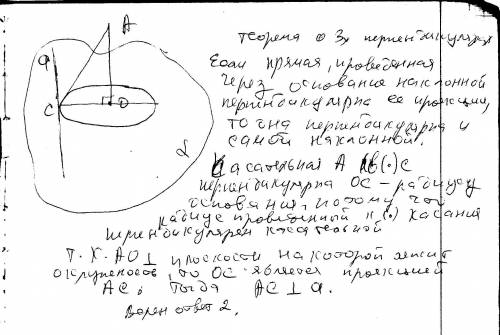 A
a
C
O
α
теорема о 3х перпендикулярах
Если прямая, проведенная
через основание наклонной
перпендикулярна ее проекции,
то она перпендикулярна и
самой наклонной.
Касательная A в (·) C
перпендикулярна OC – радиусу
основания, потому что
радиус проведенный к (·) касания
перпендикулярен касательной
Т.К. AO⊥ плоскости на которой лежит
окружность, то OC является проекцией
AC, тогда AC ⊥ a.
Верен ответ 2.